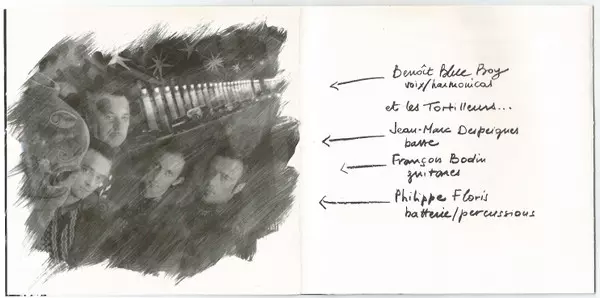 Benoît Blue Boy
voix/harmonicas
et les Tortilleurs...
Jean-Marc Despeignes
basse
François Bodin
guitares
Philippe Floris
batterie/percussions